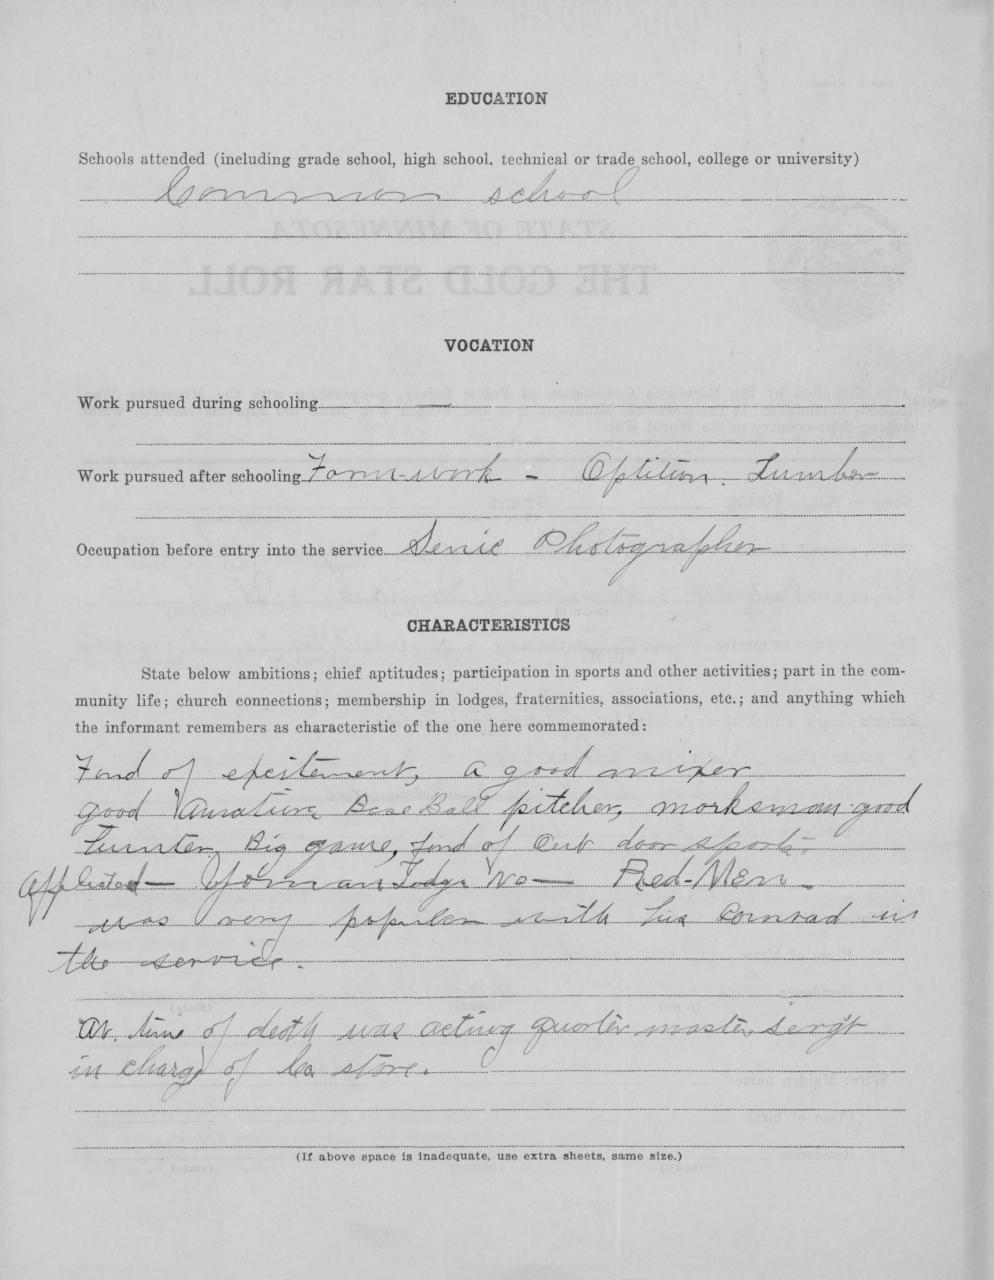 EDUCATION
Schools attended (including grade school, high school. technical or trade school, college or university)
Common school
VOCATION
Work pursued during schooling —
Work pursued after schooling Farm-work - Optition. Lumber
Occupation before entry into the service Senic Photographer
CHARACTERISTICS
State below ambitions; chief aptitudes; participation in sports and other activities; part in the com-
munity life; church connections; membership in lodges, fraternities, associations, etc.; and anything which
the informant remembers as characteristic of the one here commemorated:
Fond of excitement, a good mixer
good Base Ball pitcher, marksman good
Big game, fond of Out door sports,
Yoman Lodge No — Red-Men -
was very popular with his Comrad in
the service.
At. time of deth was acting quarter master serg't
in charge of Co store.
(If above space is inadequate, use extra sheets, same size.)